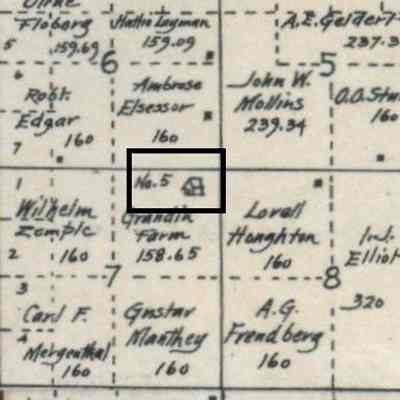 Floborg
Hattie Layman
A.E.
5
159.69
159.09
237.3
6
5
6
Robt.
Edgar
160
7
Ambrose
Elsessor
160
John W.
Mollins
239.34
O.O.
160
1
No. 5
Wilhelm
Zemple
2
160
Grandin
Farm
158.65
Lovall
Honghton
160
Elliot
7
8
3
Carl F.
4
Mergenthal
160
Gustav
Manthey
160
A.G.
Frendberg
160
320